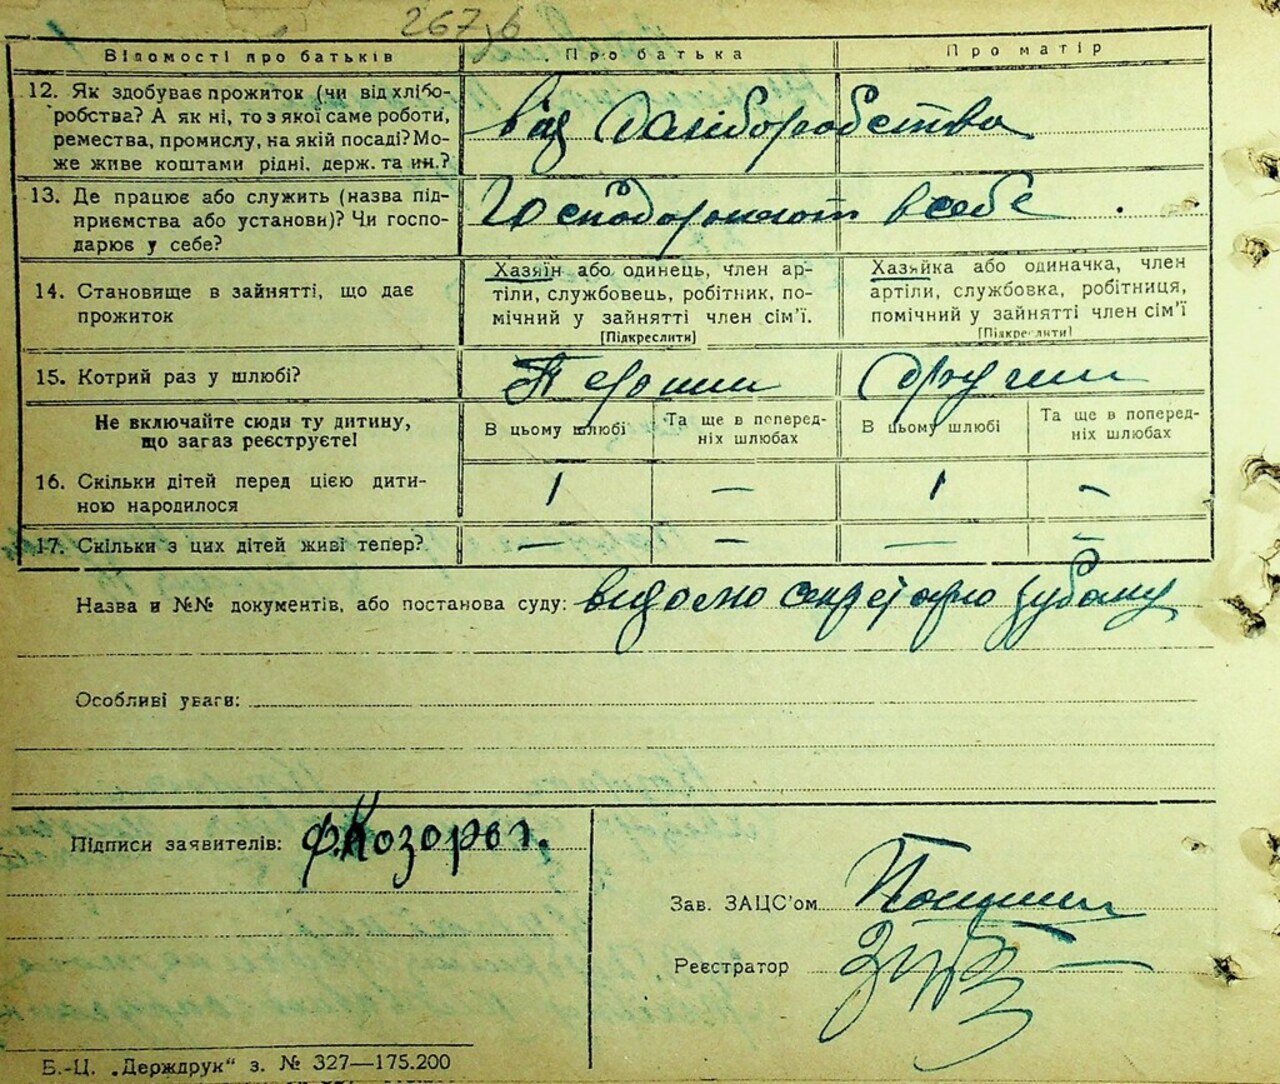 267, б
Відомості про батьків
Про батька
Про матір
12. Як здобуває прожиток (чи від хлібо-
робства? А як ні, то з якої саме роботи,
ремества, промислу, на якій посаді? Мо-
же живе коштами рідні, держ. та ин.?
від хліборобства
13. Де працює або служить (назва під-
приємства або установи)? Чи госпо-
дарює у себе?
в себе
14. Становище в зайнятті, що дає
прожиток
Хазяїн або одинець, член ар-
тіли, службовець, робітник, по-
мічний у зайнятті член сім'ї.
[Підкреслити]
Хазяйка або одиначка, член
артіли, службовка, робітниця,
помічний у зайнятті член сім'ї
[Підкреслити]
15. Котрий раз у шлюбі?
Перший
другий
Не включайте сюди ту дитину,
що загаз реєструєте!
В цьому шлюбі
Та ще в поперед-
ніх шлюбах
В цьому шлюбі
Та ще в поперед-
ніх шлюбах
16. Скільки дітей перед цією дити-
ною народилося
1 — 1 —
17. Скільки з цих дітей живі тепер?
— — — —
Назва и №№ документів, або постанова суду: відомо секретарю
Особливі уваги:
Підписи заявителів:
Зав. ЗАЦС'ом
Реєстратор
Б.-Ц. „Держдрук“ з. № 327—175.200